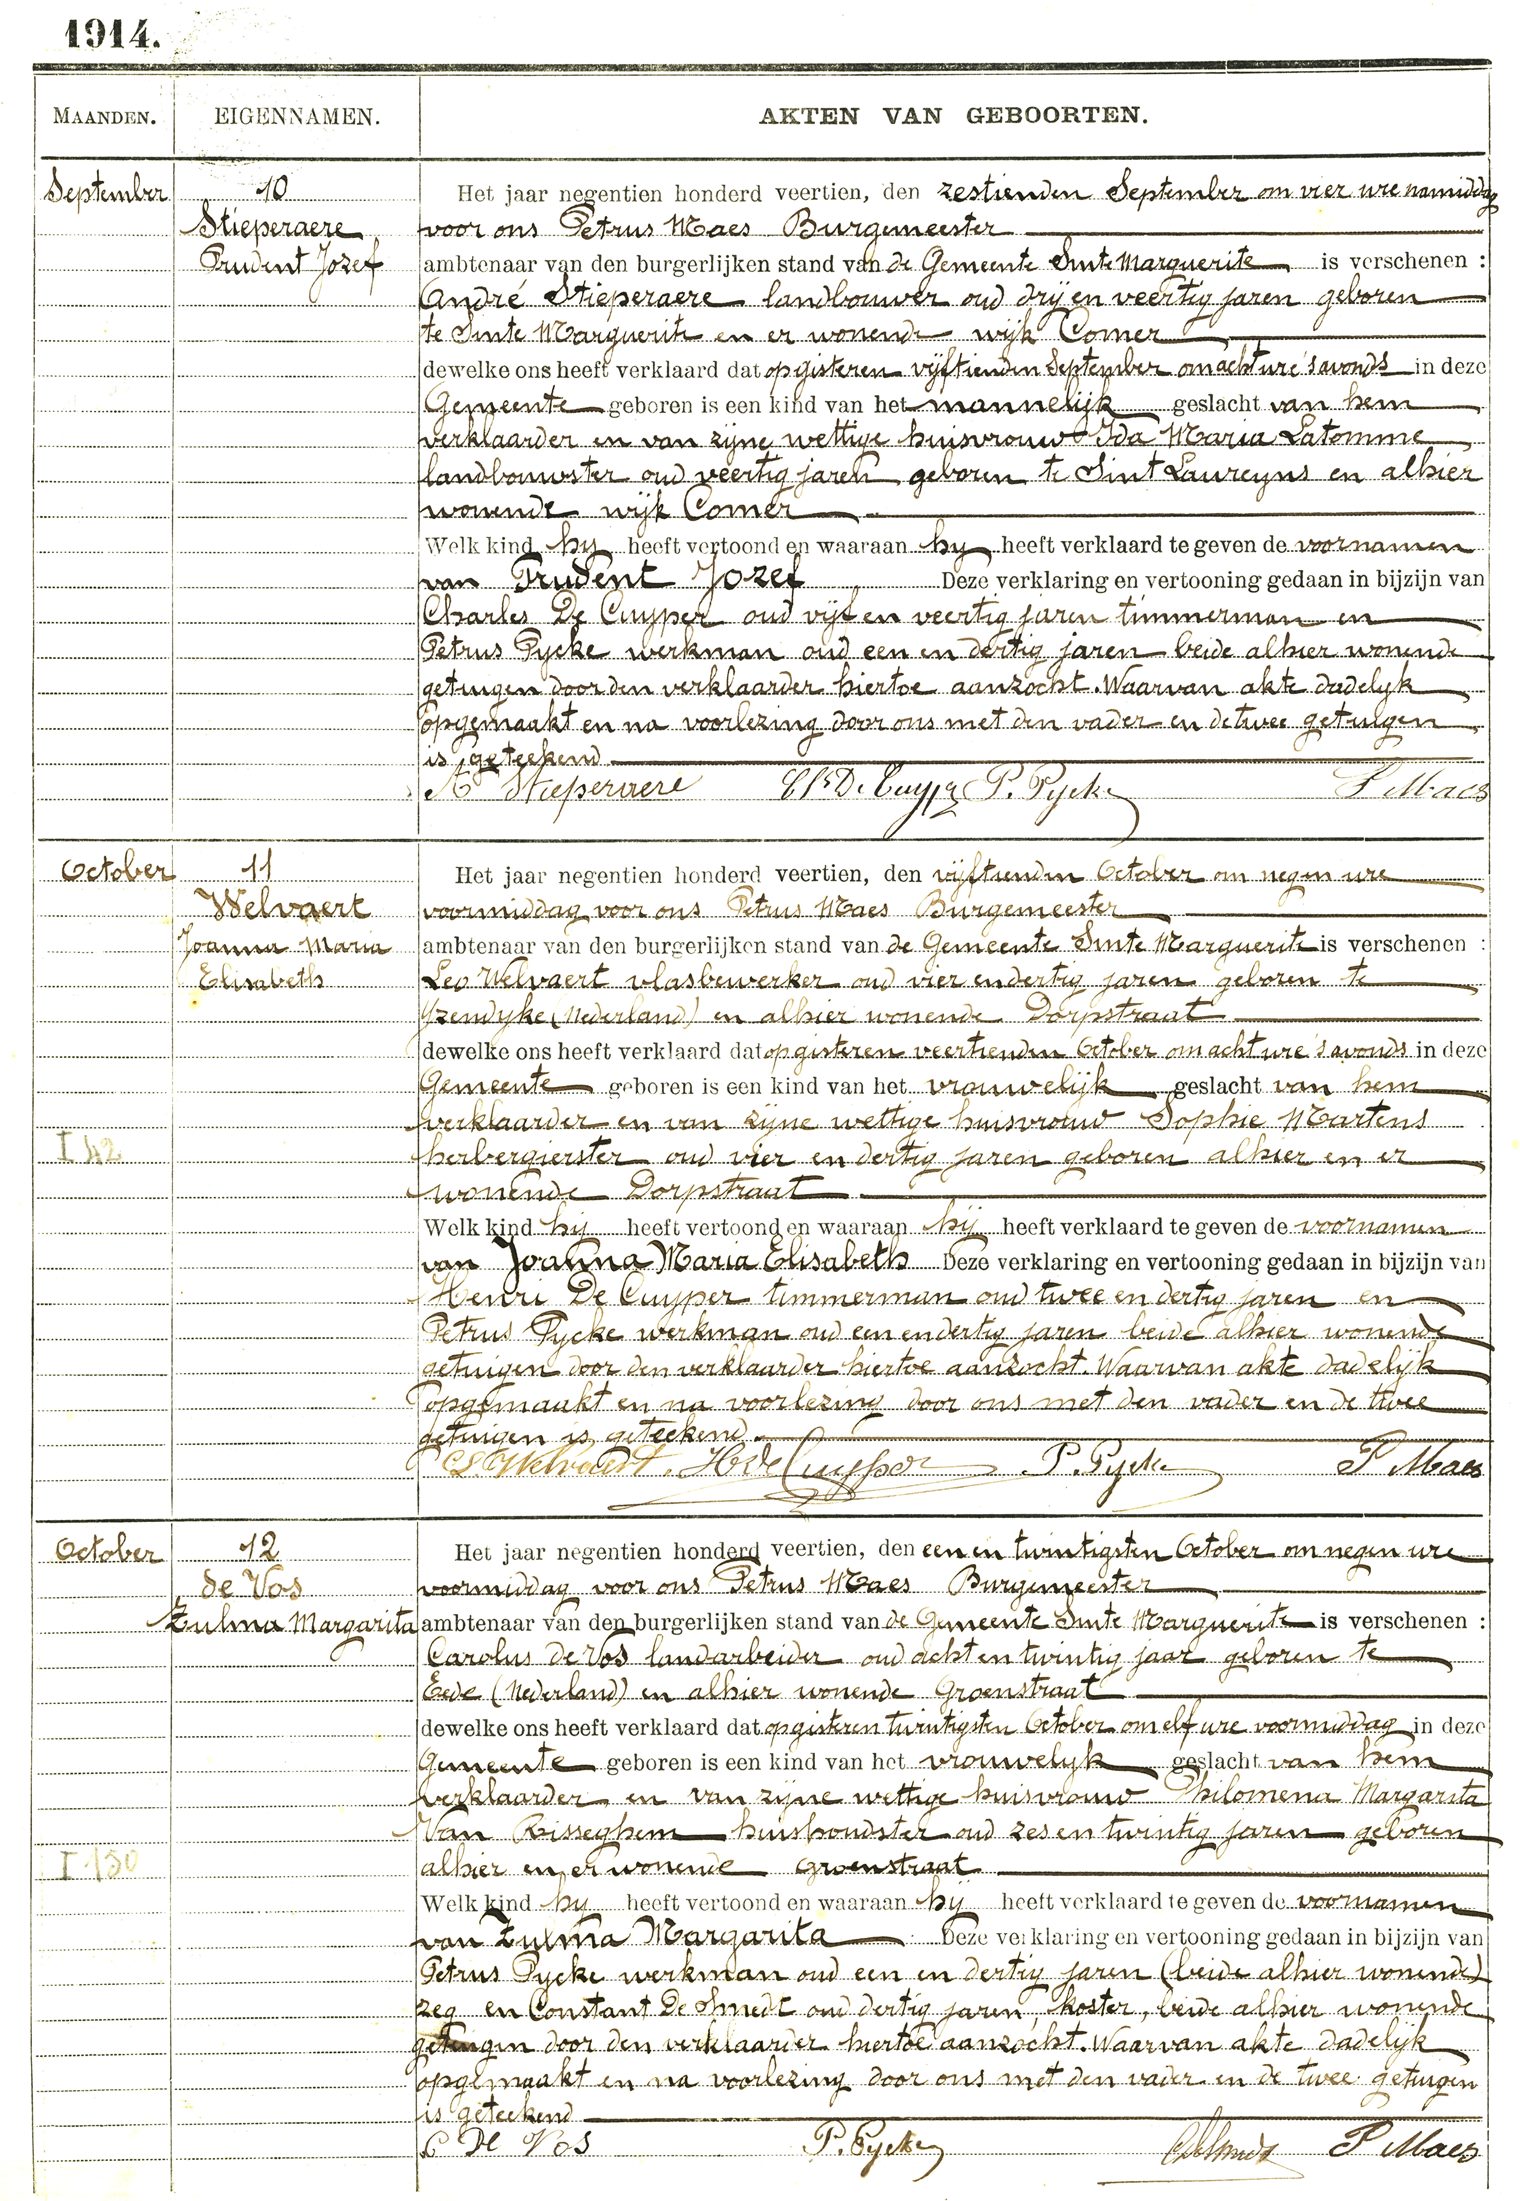 1914.
MAANDEN. EIGENNAMEN. AKTEN VAN GEBOORTEN.
September 10 Het jaar negentien honderd veertien, den zestienden September om vier ure namiddag
Stieperaere voor ons Petrus Maes Burgemeester
Prudent Jozef ambtenaar van den burgerlijken stand van de Gemeente Sinte Marguerite is verschenen :
André Stieperaere landbouwer oud drij en veertig jaren geboren
te Sinte Marguerite en er wonende wijk Comer
dewelke ons heeft verklaard dat op gisteren vijftienden September om acht ure 's avonds in deze
Gemeente geboren is een kind van het mannelijk geslacht van hem
verklaarder en van zijne wettige huisvrouw Ida Maria Latomme
landbouwster oud veertig jaren geboren te Sint Laureyns en alhier
wonende wijk Comer
Welk kind hy heeft vertoond en waaraan hy heeft verklaard te geven de voornamen
van Prudent Jozef Deze verklaring en vertooning gedaan in bijzijn van
Charles De Cuyper oud vijf en veertig jaren timmerman en
Petrus Pycke werkman oud een en dertig jaren beide alhier wonende
getuigen door den verklaarder hiertoe aanzocht. Waarvan akte dadelyk
opgemaakt en na voorlezing door ons met den vader en de twee getuigen
is geteekend
A Stieperaere Chs De Cuyper P. Pycke P Maes
October 11 Het jaar negentien honderd veertien, den vijftienden October om negen ure
Welvaert voormiddag voor ons Petrus Maes Burgemeester
Joanna Maria ambtenaar van den burgerlijken stand van de Gemeente Sinte Marguerite is verschenen :
Elisabeth Leo Welvaert vlasbewerker oud vier en dertig jaren geboren te
Yzendyke (Nederland) en alhier wonende Dorpstraat
dewelke ons heeft verklaard dat op gisteren veertienden October om acht ure 's avonds in deze
Gemeente geboren is een kind van het vrouwelijk geslacht van hem
verklaarder en van zijne wettige huisvrouw Sophie Martens
I 42 herbergierster oud vier en dertig jaren geboren alhier en er
wonende Dorpstraat
Welk kind hij heeft vertoond en waaraan hij heeft verklaard te geven de voornamen
van Joanna Maria Elisabeth Deze verklaring en vertooning gedaan in bijzijn van
Henri De Cuyper timmerman oud twee en dertig jaren en
Petrus Pycke werkman oud een en dertig jaren beide alhier wonende
getuigen door den verklaarder hiertoe aanzocht. Waarvan akte dadelijk
opgemaakt en na voorlezing door ons met den vader en de twee
getuigen is geteekend.
L. Welvaert. H de Cuyper P. Pycke P Maes
October 12 Het jaar negentien honderd veertien, den een en twintigsten October om negen ure
de Vos voormiddag voor ons Petrus Maes Burgemeester
Zulma Margarita ambtenaar van den burgerlijken stand van de Gemeente Sinte Marguerite is verschenen :
Carolus de Vos landarbeider oud acht en twintig jaar geboren te
Eede (Nederland) en alhier wonende Groenstraat
dewelke ons heeft verklaard dat op gisteren twintigsten October om elf ure voormiddag in deze
Gemeente geboren is een kind van het vrouwelyk geslacht van hem
verklaarder en van zijne wettige huisvrouw Philomena Margarita
Van Risseghem huishoudster oud zes en twintig jaren geboren
I 150 alhier en er wonende Groenstraat
Welk kind hy heeft vertoond en waaraan hij heeft verklaard te geven de voornamen
van Zulma Margarita Deze verklaring en vertooning gedaan in bijzijn van
Petrus Pycke werkman oud een en dertig jaren (beide alhier wonende)
zeg en Constant De Smedt oud dertig jaren, koster, beide alhier wonende
getuigen door den verklaarder hiertoe aanzocht. Waarvan akte dadelijk
opgemaakt en na voorlezing door ons met den vader en de twee getuigen
is geteekend
C De Vos P. Pycke C De Smedt P Maes